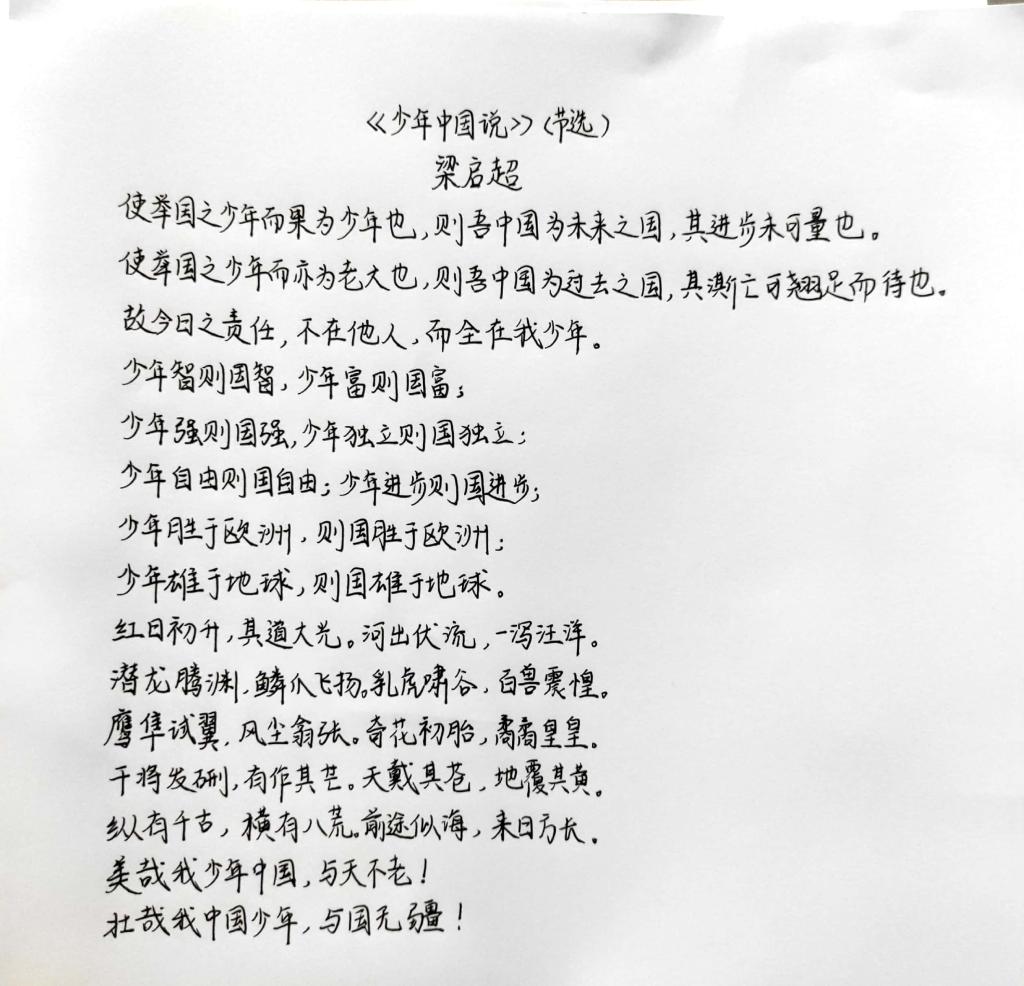 《少年中国说》(节选)
梁启超
使举国之少年而果为少年也,则吾中国为未来之国,其进步未可量也。
使举国之少年而亦为老大也,则吾中国为过去之国,其澌亡可翘足而待也。
故今日之责任,不在他人,而全在我少年。
少年智则国智,少年富则国富;
少年强则国强,少年独立则国独立;
少年自由则国自由;少年进步则国进步;
少年胜于欧洲,则国胜于欧洲;
少年雄于地球,则国雄于地球。
红日初升,其道大光。河出伏流,一泻汪洋。
潜龙腾渊,鳞爪飞扬。乳虎啸谷,百兽震惶。
鹰隼试翼,风尘翕张。奇花初胎,矞矞皇皇。
干将发硎,有作其芒。天戴其苍,地覆其黄。
纵有千古,横有八荒。前途似海,来日方长。
美哉我少年中国,与天不老!
壮哉我中国少年,与国无疆!